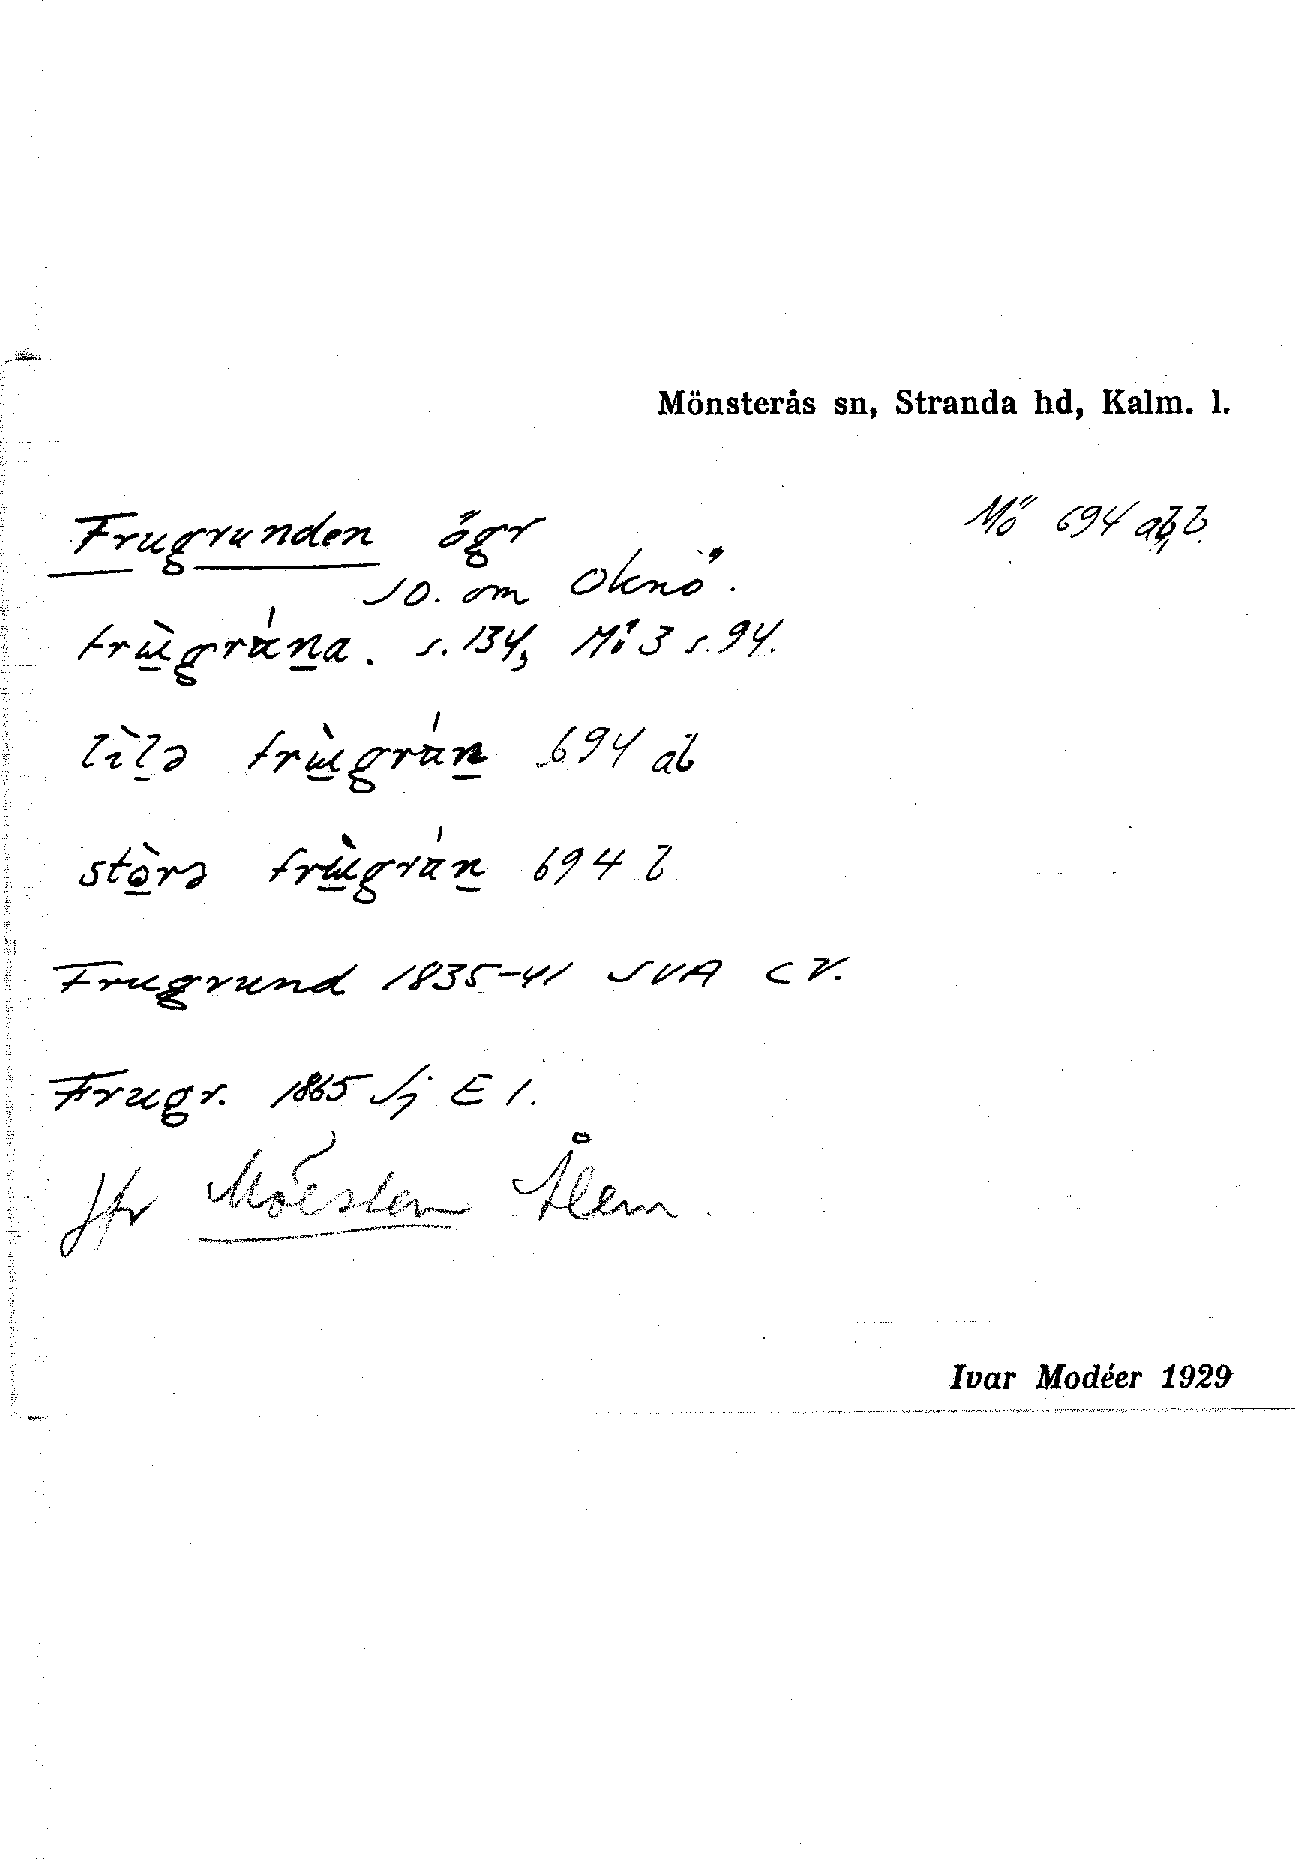 Mönsterås sn, Stranda hd, Kalm. l.
Frugrunden ögr Mö 694 ab, b
SO. om Oknö.
frùgrána. s. 134, Mö 3 s. 94.
lìlə frùgrán 694 ab
stòrə frùgrán 694 b
Frugrund 1835-41 SVA CV.
Frugr. 1865 Sj E 1.
Jfr Möesten Ålem.
Ivar Modéer 1929